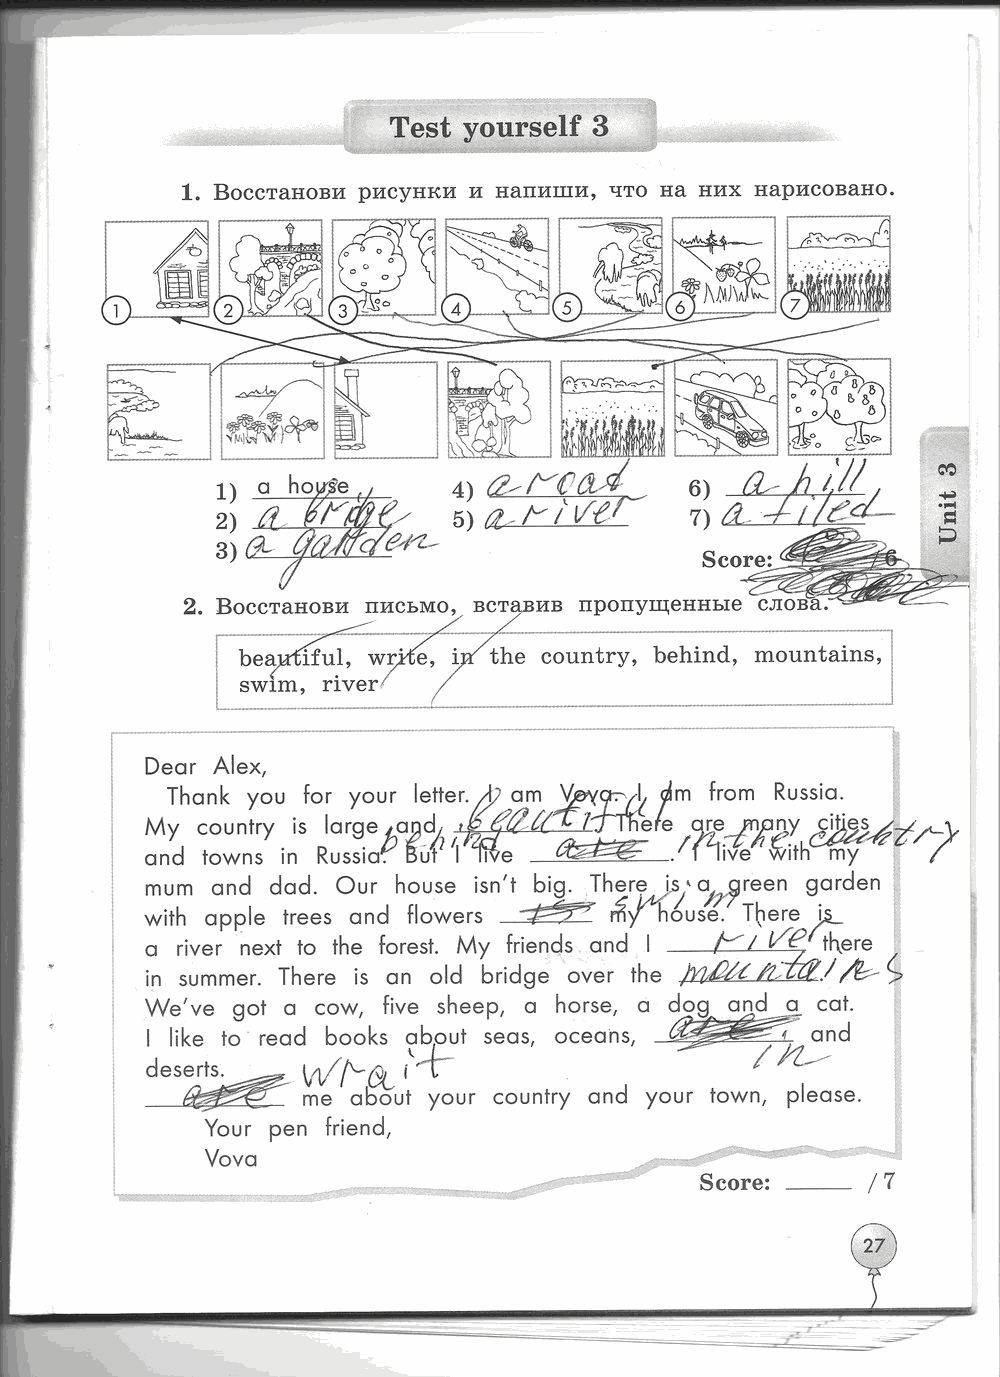 Test yourself 3
1. Восстанови рисунки и напиши, что на них нарисовано.
1 2 3 4 5 6 7
1) a house 4) a road 6) a hill
2) a bridge 5) a river 7) a filed
3) a garden
Score: / 6
Unit 3
2. Восстанови письмо, вставив пропущенные слова.
beautiful, write, in the country, behind, mountains,
swim, river
Dear Alex,
Thank you for your letter. I am Vova. I am from Russia.
My country is large and beautiful. There are many cities
and towns in Russia. But I live are. I live with my
behind in the country
mum and dad. Our house isn't big. There is a green garden
with apple trees and flowers is my house. There is
swim
a river next to the forest. My friends and I river there
in summer. There is an old bridge over the mountains
We've got a cow, five sheep, a horse, a dog and a cat.
I like to read books about seas, oceans, are, and
in
deserts.
wrait
are me about your country and your town, please.
Your pen friend,
Vova
Score: / 7
27